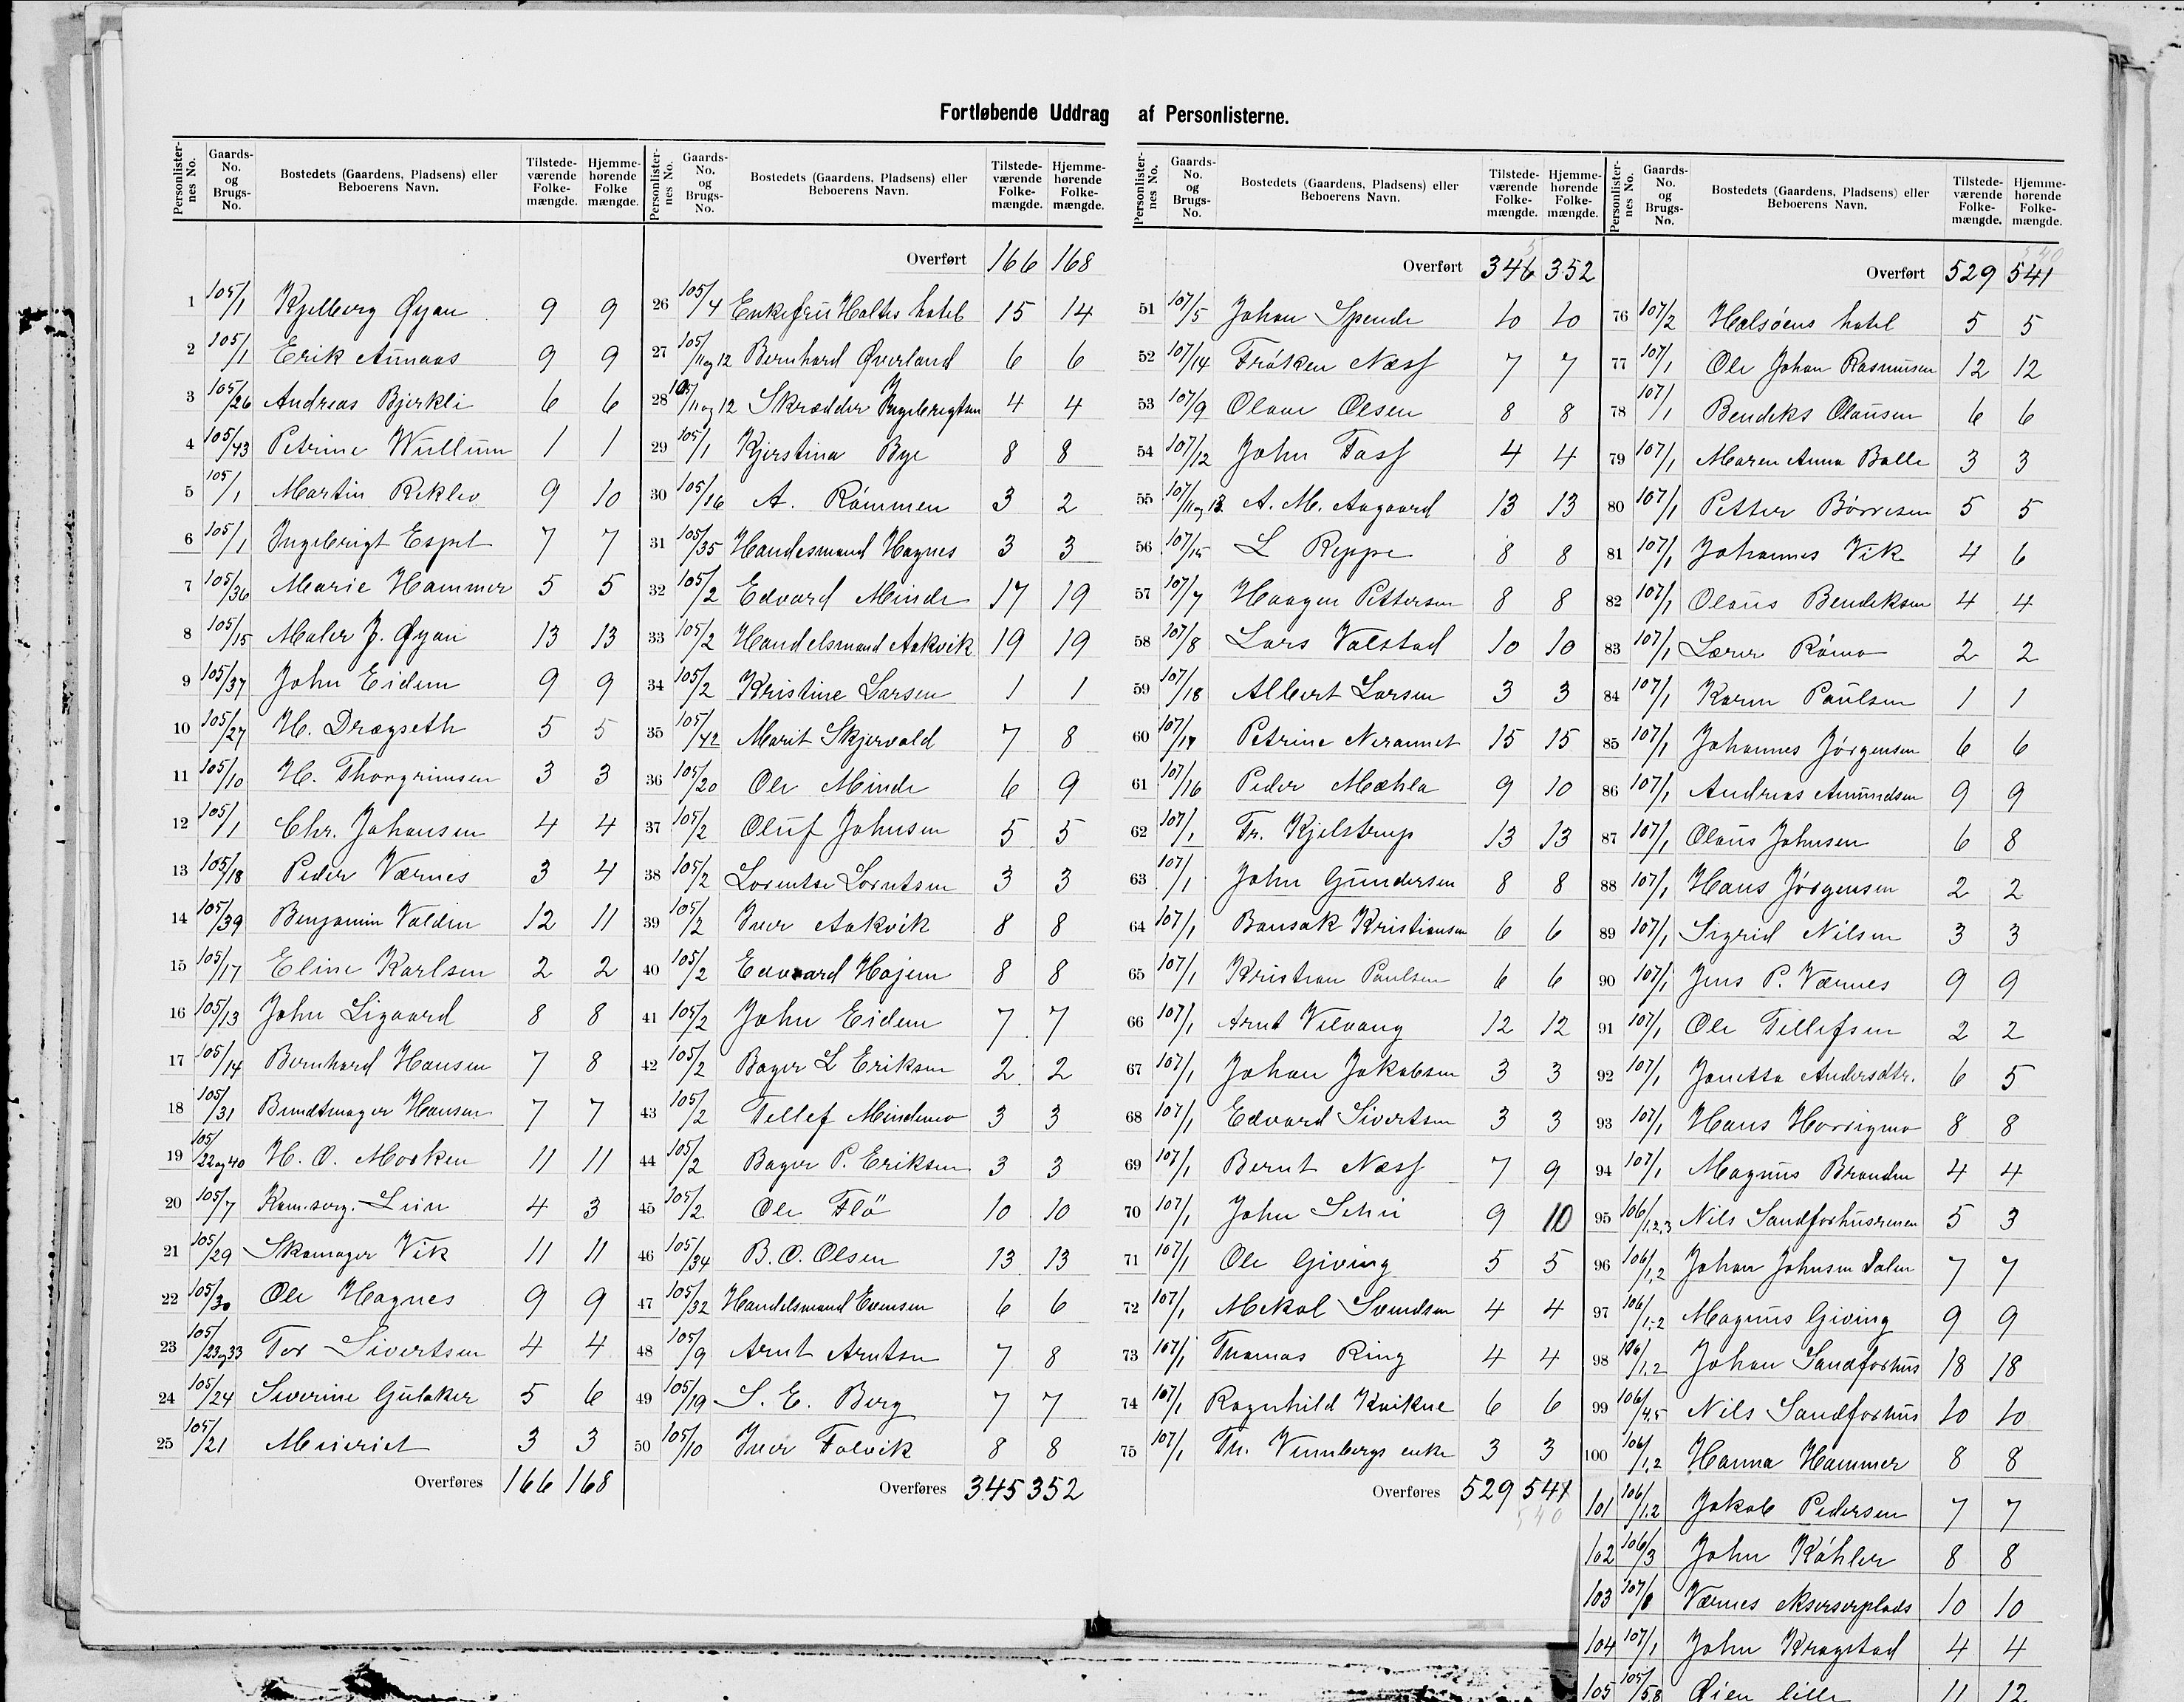 Fortløbende Uddrag af Personlisterne.
Personlister-nes No. Gaards-No. og Brugs-No. Bostedets (Gaardens, Pladsens) eller Beboerens Navn. Tilstede-værende Folke-mængde. Hjemme-hørende Folke mængde.
1 105/1 Kjelberg Øyan 9 9
2 105/1 Erik Aunaas 9 9
3 105/26 Andreas Bjerkli 6 6
4 105/43 Petrine Wullum 1 1
5 105/1 Martin Reklev 9 10
6 105/1 Ingebrigt Espet 7 7
7 105/36 Marie Hammer 5 5
8 105/15 Maler J. Øyan 13 13
9 105/37 John Eidem 9 9
10 105/27 H. Dragseth 5 5
11 105/10 H. Thorgrimsen 3 3
12 105/1 Chr. Johansen 4 4
13 105/18 Peder Værnes 3 4
14 105/39 Benjamin Valdin 12 11
15 105/17 Eline Karlsen 2 2
16 105/13 John Ligaard 8 8
17 105/14 Bernhard Hansen 7 8
18 105/31 Bundtmager Hansen 7 7
19 105/22 og 40 H. O. Morken 11 11
20 105/7 Kam.serg. Lien 4 3
21 105/29 Skomager Vik 11 11
22 105/30 Ole Hognes 9 9
23 105/23 og 33 Tor Sivertsen 4 4
24 105/24 Severine Gulaker 5 6
25 105/21 Meieriet 3 3
Overføres 166 168
Personlister-nes No. Gaards-No. og Brugs-No. Bostedets (Gaardens, Pladsens) eller Beboerens Navn. Tilstede-værende Folke-mængde. Hjemme-hørende Folke-mængde.
Overført 166 168
26 105/4 Enkefru Holtes hotel 15 14
27 105/11 og 12 Bernhard Øverland 6 6
28 105/11 og 12 Skrædder Ingebrigtsen 4 4
29 105/1 Kjerstina Bye 8 8
30 105/16 A. Römmen 3 2
31 105/35 Handesmand Hognes 3 3
32 105/2 Edvard Minde 17 19
33 105/2 Handelsmand Aakvik 19 19
34 105/2 Kristine Larsen 1 1
35 105/42 Marit Skjervold 7 8
36 105/20 Ole Minde 6 9
37 105/2 Oluf Johnsen 5 5
38 105/2 Lorentse Lorntsen 3 3
39 105/2 Iver Aakvik 8 8
40 105/2 Edvard Hojem 8 8
41 105/2 John Eidem 7 7
42 105/2 Bager L Eriksen 2 2
43 105/2 Tellef Mindemo 3 3
44 105/2 Bager P. Eriksen 3 3
45 105/2 Ole Flö 10 10
46 105/34 B. O. Olsen 13 13
47 105/32 Handelsmand Evensen 6 6
48 105/9 Arnt Arntsen 7 8
49 105/19 S. E. Berg 7 7
50 105/10 Iver Folvik 8 8
Overføres 345 352
Personlister-nes No. Gaards-No. og Brugs-No. Bostedets (Gaardens, Pladsens) eller Beboerens Navn. Tilstede-værende Folke-mængde. Hjemme-hørende Folke-mængde.
Overført 346 352
51 107/5 Johan Spende 10 10
52 107/14 Frøken Næss 7 7
53 107/9 Olave Olsen 8 8
54 107/12 John Foss 4 4
55 107/11 og 13 A. M. Aagaard 13 13
56 107/15 L Reppe 8 8
57 107/7 Haagen Pettersen 8 8
58 107/8 Lars Valstad 10 10
59 107/18 Albert Larsen 3 3
60 107/17 Petrine Nerannet 15 15
61 107/16 Peder Mæhla 9 10
62 107/1 Fr. Kjelstrup 13 13
63 107/1 John Gundersen 8 8
64 107/1 Bonsak Kristiansen 6 6
65 107/1 Kristian Paulsen 6 6
66 107/1 Arnt Vilvang 12 12
67 107/1 Johan Jakobsen 3 3
68 107/1 Edvard Sivertsen 3 3
69 107/1 Bernt Næss 7 9
70 107/1 John Schei 9 10
71 107/1 Ole Giving 5 5
72 107/1 Mekal Svendsen 4 4
73 107/1 Thomas Ring 4 4
74 107/1 Ragnhild Kvikne 6 6
75 107/1 Th. Vennbergs enke 3 3
Overføres 529 541
540
Personlister-nes No. Gaards-No. og Brugs-No. Bostedets (Gaardens, Pladsens) eller Beboerens Navn. Tilstede-værende Folke-mængde. Hjemme-hørende Folke-mængde.
540
Overført 529 541
76 107/2 Halsöens hotel 5 5
77 107/1 Ole Johan Rasmusen 12 12
78 107/1 Bendeks Olausen 6 6
79 107/1 Maren Anna Balle 3 3
80 107/1 Petter Börresen 5 5
81 107/1 Johannes Vik 4 6
82 107/1 Olaus Bendeksen 4 4
83 107/1 Lærer Römo 2 2
84 107/1 Karen Paulsen 1 1
85 107/1 Johannes Jörgensen 6 6
86 107/1 Andreas Amundsen 9 9
87 107/1 Olaus Johnsen 6 8
88 107/1 Hans Jörgensen 2 2
89 107/1 Sigrid Nilsen 3 3
90 107/1 Jens P. Værnes 9 9
91 107/1 Ole Tellefsen 2 2
92 107/1 Jonetta Andersdtr. 6 5
93 107/1 Hans Horrigmo 8 8
94 107/1 Magnus Branden 4 4
95 106/1.2.3 Nils Sandforhusenen 5 3
96 106/1.2 Johan Johnsen Dalen 7 7
97 106/1.2 Magnus Giving 9 9
98 106/1.2 Johan Sandforhus 18 18
99 106/4.5 Nils Sandforhus 10 10
100 106/1.2 Hanna Hammer 8 8
101 106/1.2 Jakob Pedersen 7 7
102 106/3 John Köhler 8 8
103 107/8 Værnes ekserserplads 10 10
104 107/1 John Kragstad 4 4
105 105/58 Öien lille 11 12